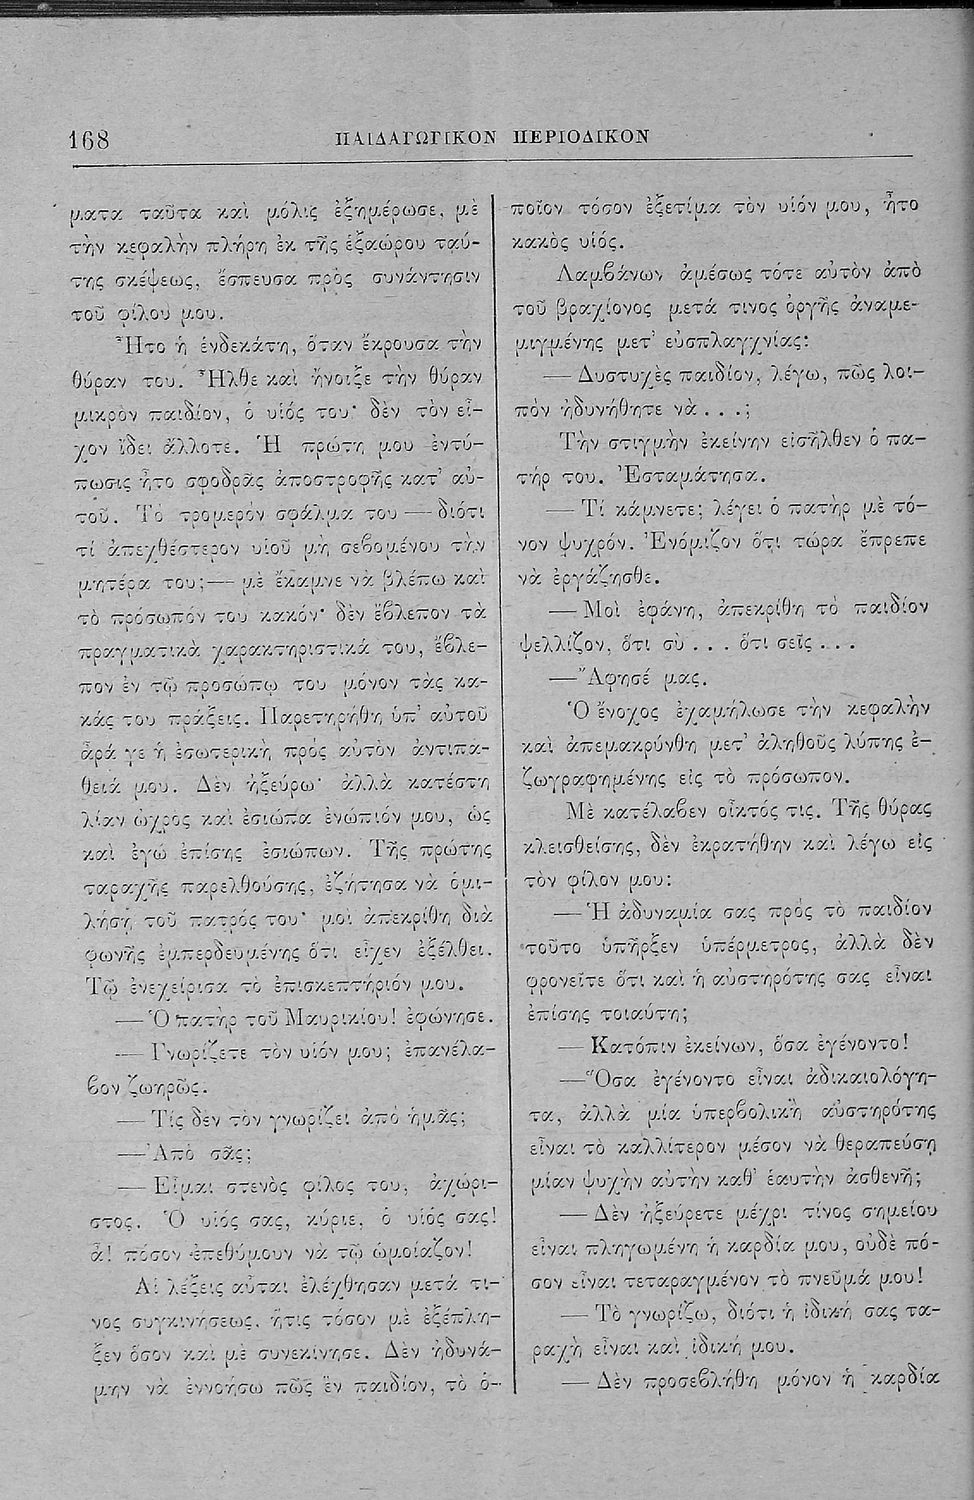 168
ΠΑΙΔΑΓΩΓΙΚΟΝ ΠΕΡΙΟΔΙΚΟΝ
ματα ταῦτα καὶ μόλις ἐξημέρωσε, μὲ
τὴν κεφαλὴν πλήρη ἐκ τῆς ἑξαώρου ταύ-
της σκέψεως, ἔσπευσα πρὸς συνάντησιν
τοῦ φίλου μου.
Ἦτο ἡ ἑνδεκάτη, ὅταν ἔκρουσα τὴν
θύραν του. Ἦλθε καὶ ἤνοιξε τὴν θύραν
μικρὸν παιδίον, ὁ υἱός του· δὲν τὸν εἶ-
χον ἴδει ἄλλοτε. Ἡ πρώτη μου ἐντύ-
πωσις ἦτο σφοδρᾶς ἀποστροφῆς κατ’ αὐ-
τοῦ. Τὸ τρομερόν σφάλμα του — διότι
τί ἀπεχθέστερον υἱοῦ μὴ σεβομένου τὴν
μητέρα του;— μὲ ἔκαμνε νὰ βλέπω καὶ
τὸ πρόσωπόν του κακόν· δὲν ἔβλεπον τὰ
πραγματικὰ χαρακτηριστικά του, ἔβλε-
πον ἐν τῷ προσώπῳ του μόνον τὰς κα-
κάς του πράξεις. Παρετηρήθη ὑπ’ αὐτοῦ
ἆρά γε ἡ ἐσωτερικὴ πρὸς αὐτὸν ἀντιπα-
θειά μου. Δὲν ἠξεύρω· ἀλλὰ κατέστη
λίαν ὠχρὸς καὶ ἐσιώπα ἐνώπιόν μου, ὡς
καὶ ἐγώ ἐπίσης ἐσιώπων. Τῆς πρώτης
ταραχῆς παρελθούσης, ἐζήτησα νὰ ὁμι-
λήσῃ τοῦ πατρός του· μοὶ ἀπεκρίθη διὰ
φωνῆς ἐμπερδευμένης ὅτι εἶχεν ἐξέλθει.
Τῷ ἐνεχείρισα τὸ ἐπισκεπτήριόν μου.
— Ὁ πατὴρ τοῦ Μαυρικίου! ἐφώνησε.
— Γνωρίζετε τὸν υἱόν μου; ἐπανέλα-
βον ζωηρῶς.
— Τίς δὲν τὸν γνωρίζει ἀπὸ ἡμᾶς;
— Ἀπὸ σᾶς;
— Εἶμαι στενὸς φίλος του, ἀχώρι-
στος. Ὁ υἱός σας, κύριε, ὁ υἱός σας!
ἆ! πόσον ἐπεθύμουν νὰ τῷ ὡμοίαζον!
Αἱ λέξεις αὗται ἐλέχθησαν μετά τι-
νος συγκινήσεως, ἥτις τόσον μὲ ἐξέπλη-
ξεν ὅσον καὶ μὲ συνεκίνησε. Δὲν ἠδυνά-
μην νὰ ἐννοήσω πῶς ἓν παιδίον, τὸ ὁ-
ποῖον τόσον ἐξετίμα τὸν υἱόν μου, ἦτο
κακὸς υἱός.
Λαμβάνων ἀμέσως τότε αὐτὸν ἀπὸ
τοῦ βραχίονος μετά τινος ὀργῆς ἀναμε-
μιγμένης μετ’ εὐσπλαγχνίας:
— Δυστυχὲς παιδίον, λέγω, πῶς λοι-
πὸν ἠδυνήθητε νὰ . . .;
Τὴν στιγμὴν ἐκείνην εἰσῆλθεν ὁ πα-
τήρ του. Ἐσταμάτησα.
— Τί κάμνετε; λέγει ὁ πατὴρ μὲ τό-
νον ψυχρόν. Ἐνόμιζον ὅτι τώρα ἔπρεπε
νὰ ἐργάζησθε.
— Μοὶ ἐφάνη, ἀπεκρίθη τὸ παιδίον
ψελλίζον, ὅτι σὺ . . . ὅτι σεῖς . . .
— Ἄφησέ μας.
Ὁ ἔνοχος ἐχαμήλωσε τὴν κεφαλὴν
καὶ ἀπεμακρύνθη μετ’ ἀληθοῦς λύπης ἐ-
ζωγραφημένης εἰς τὸ πρόσωπον.
Μὲ κατέλαβεν οἶκτός τις. Τῆς θύρας
κλεισθείσης, δὲν ἐκρατήθην καὶ λέγω εἰς
τὸν φίλον μου:
— Ἡ ἀδυναμία σας πρὸς τὸ παιδίον
τοῦτο ὑπῆρξεν ὑπέρμετρος, ἀλλὰ δὲν
φρονεῖτε ὅτι καὶ ἡ αὐστηρότης σας εἶναι
ἐπίσης τοιαύτη;
— Κατόπιν ἐκείνων, ὅσα ἐγένοντο!
— Ὅσα ἐγένοντο εἶναι ἀδικαιολόγη-
τα, ἀλλὰ μία ὑπερβολικὴ αὐστηρότης
εἶναι τὸ καλλίτερον μέσον νὰ θεραπεύσῃ
μίαν ψυχὴν αὐτὴν καθ’ ἑαυτὴν ἀσθενῆ;
— Δὲν ἠξεύρετε μέχρι τίνος σημείου
εἶναι πληγωμένη ἡ καρδία μου, οὐδὲ πό-
σον εἶναι τεταραγμένον τὸ πνεῦμά μου!
— Τὸ γνωρίζω, διότι ἡ ἰδική σας τα-
ραχὴ εἶναι καὶ ἰδική μου.
— Δὲν προσεβλήθη μόνον ἡ καρδία